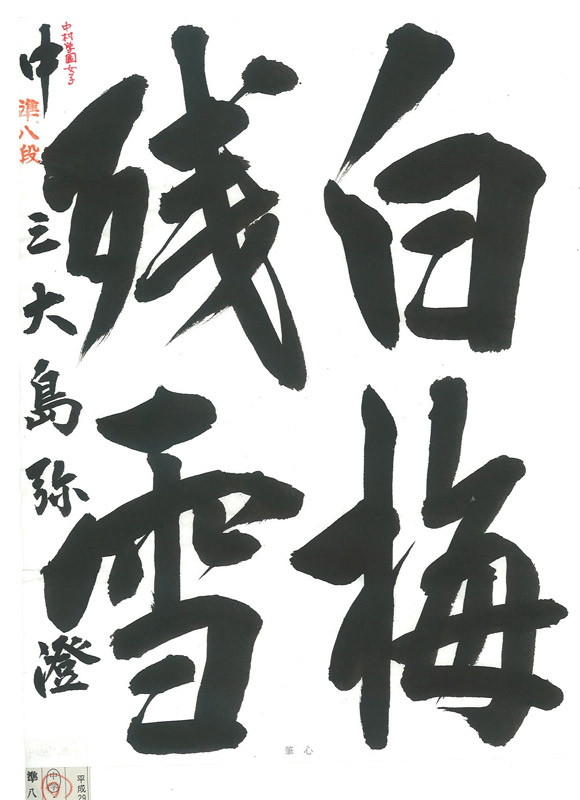 白梅
残雪
中三大島弥澄
中村学園女子
準八段
心筆
平成29
中学
準八